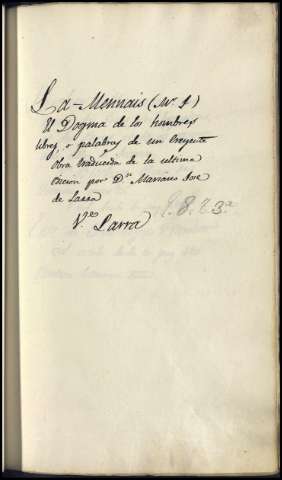 La-Mennais (Mr F)
El Dogma de los hombres
libres, o palabras de un Creyente
obra traducida de la ultima
edicion por Dn Mariano José
de Larra
Ve Larra